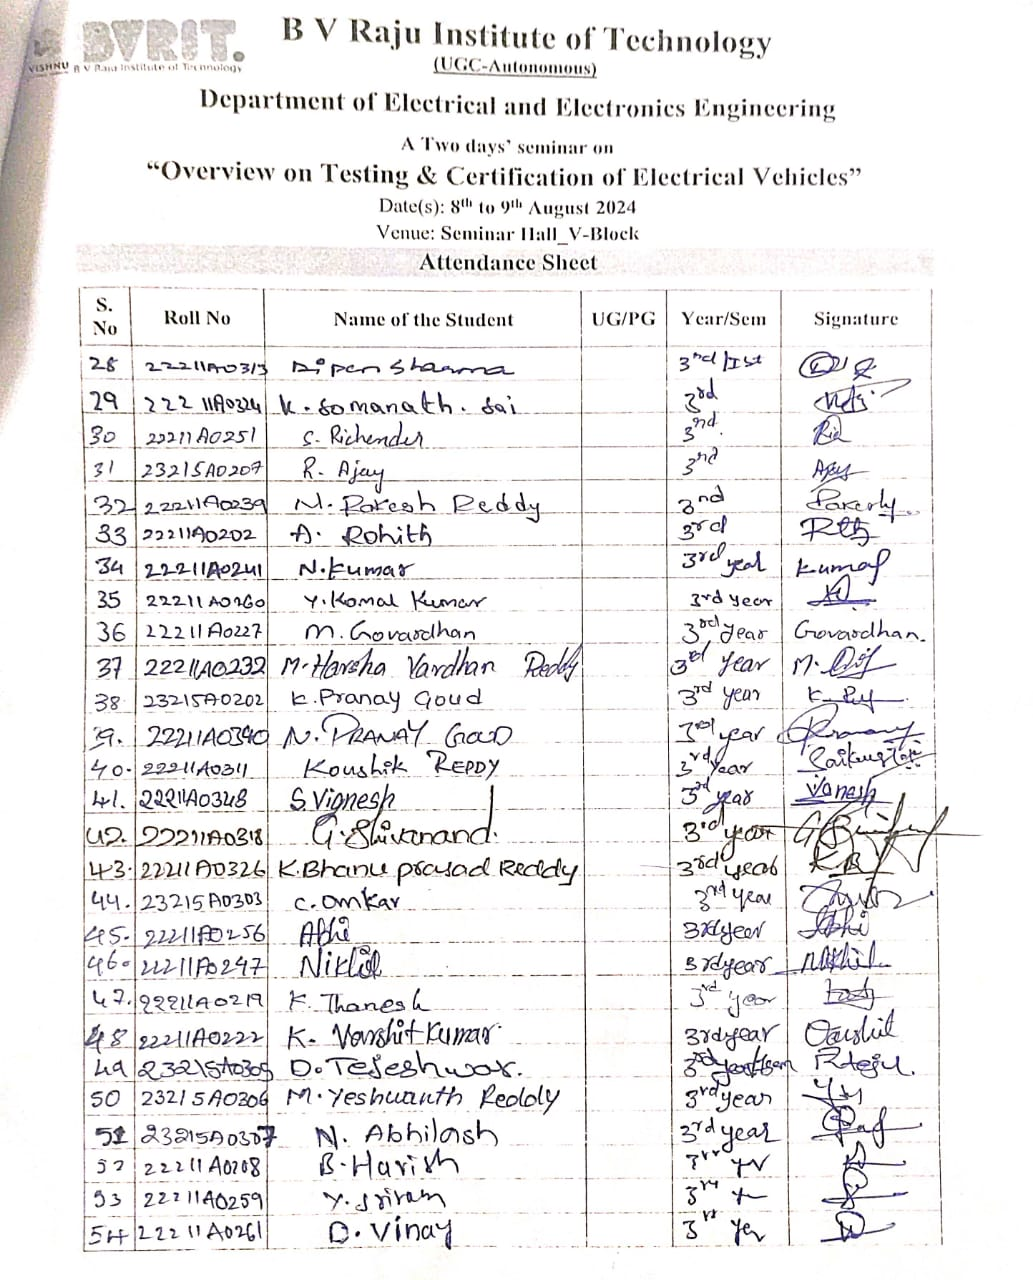 BVRIT.
VISHNU B V Raju Institute of Technology
B V Raju Institute of Technology
(UGC-Autonomous)
Department of Electrical and Electronics Engineering
A Two days' seminar on
“Overview on Testing & Certification of Electrical Vehicles”
Date(s): 8th to 9th August 2024
Venue: Seminar Hall_V-Block
Attendance Sheet
S. No Roll No Name of the Student UG/PG Year/Sem Signature
28 22211A0313 Dipen Sharma 3rd/Ist
29 22211A0324 K. Somanath. Sai 3rd
30 22211A0251 S. Richender 3rd
31 23215A0207 R. Ajay 3rd Ajay
32 22211A0239 M. Rakesh Reddy 3nd
33 22211A0202 A. Rohith 3rd
34 22211A0241 N. Kumar 3rd year Kumar
35 22211A0260 Y. Komal Kumar 3rd year
36 22211A0227 M. Govardhan 3rd year Govardhan.
37 22211A0232 M. Harsha Vardhan Reddy 3rd year
38 23215A0202 K. Pranay Goud 3rd year
39. 22211A0340 N. PRANAY GOUD 3rd year
40. 22211A0311 Koushik REDDY 3rd year
41. 22211A0348 S. Vignesh 3rd year
42. 22211A0318 G. Shivanand. 3rd year
43. 22211A0326 K. Bhanu prasad Reddy 3rd year KB
44. 23215A0303 C. Omkar 3rd year
45. 22211A0256 Abhi 3rd year Abhi
46. 22211A0247 Nikhil 3rd year Nikhil
47. 22211A0219 K. Thanesh 3rd year
48 22211A0222 K. Varshit Kumar 3rd year Varshit
49 23215A0305 D. Tejeshwar. 3rd year
50 23215A0306 M. Yeshwanth Reddy 3rd year
51 23215A0307 N. Abhilash 3rd year
52 22211A0208 B. Harish 3rd yr
53 22211A0259 Y. Sriram 3rd
54 22211A0261 D. Vinay 3rd Yer